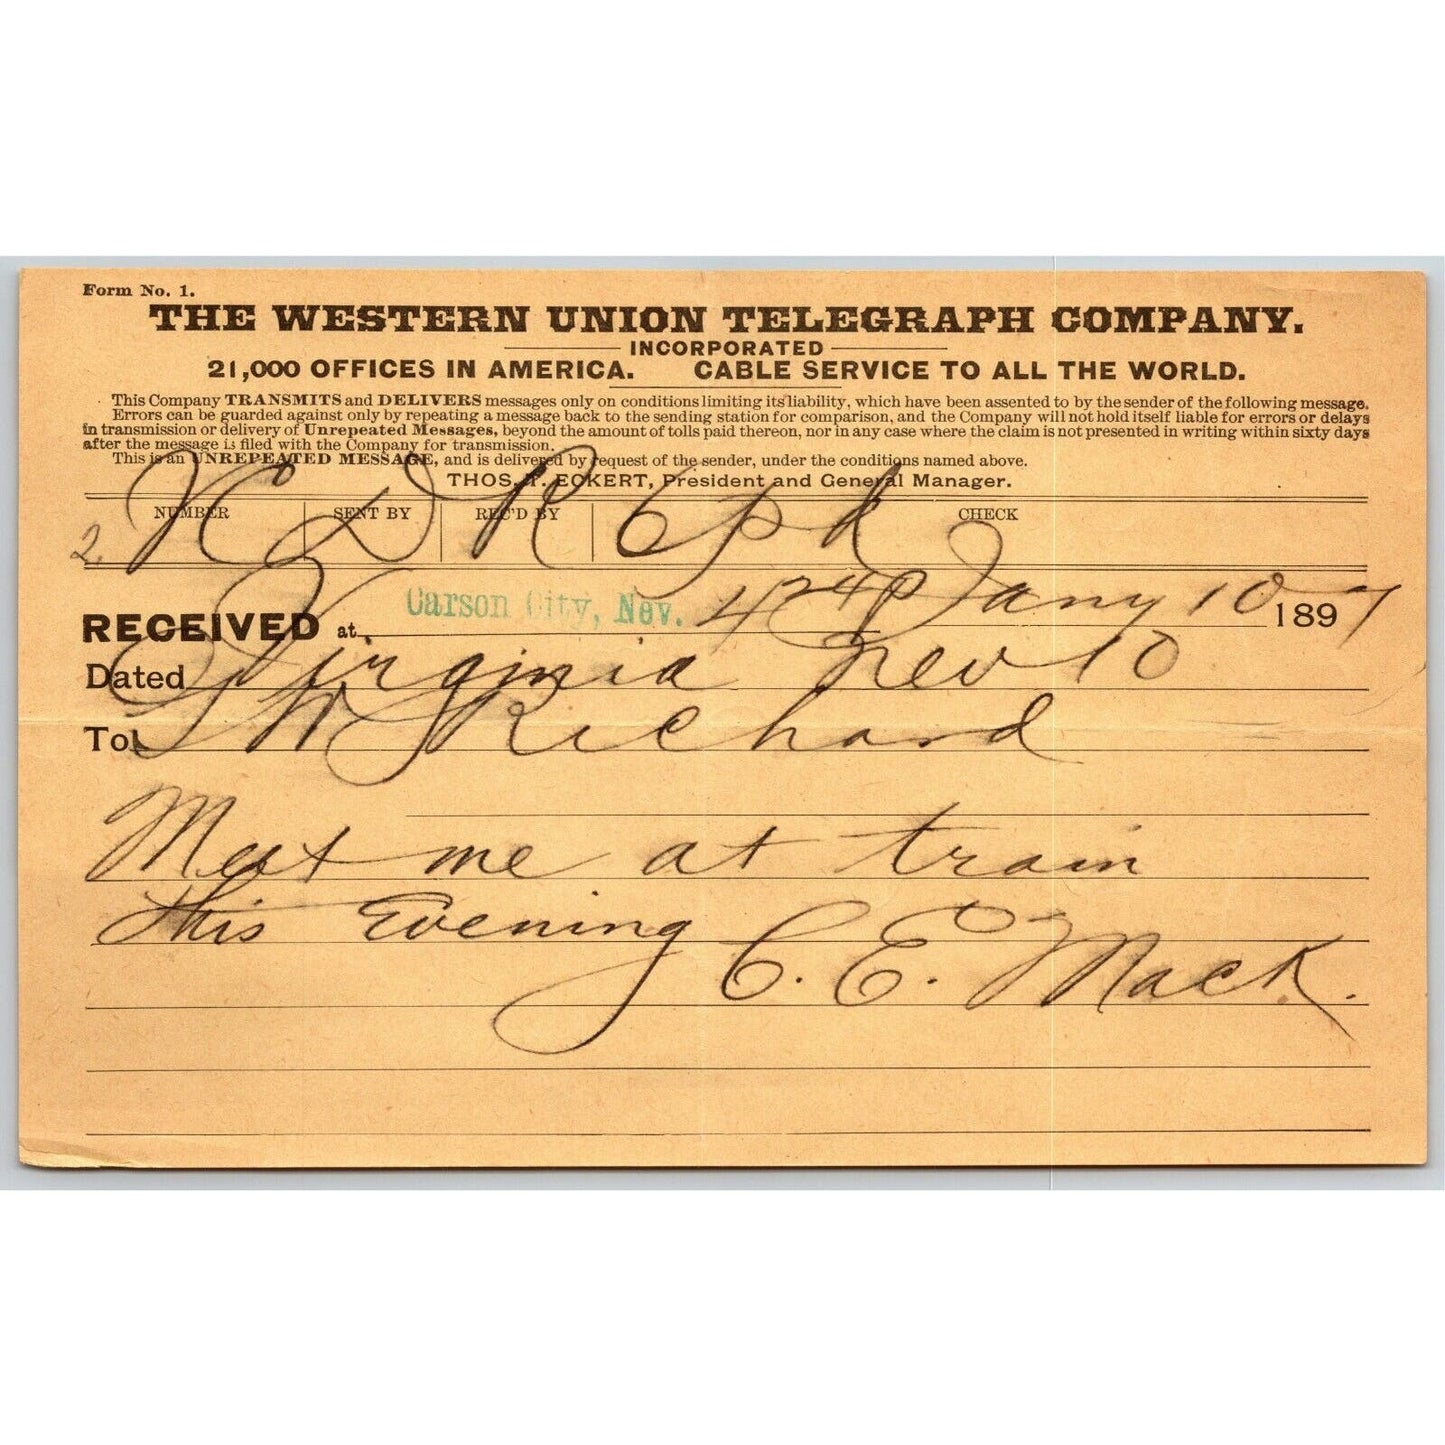 Form No. 1.
THE WESTERN UNION TELEGRAPH COMPANY.
INCORPORATED
21,000 OFFICES IN AMERICA. CABLE SERVICE TO ALL THE WORLD.
This Company TRANSMITS and DELIVERS messages only on conditions limiting its liability, which have been assented to by the sender of the following message.
Errors can be guarded against only by repeating a message back to the sending station for comparison, and the Company will not hold itself liable for errors or delays
in transmission or delivery of Unrepeated Messages, beyond the amount of tolls paid thereon, nor in any case where the claim is not presented in writing within sixty days
after the message is filed with the Company for transmission.
This is an UNREPEATED MESSAGE, and is delivered by request of the sender, under the conditions named above.
THOS. T. ECKERT, President and General Manager.
NUMBER SENT BY REC'D BY CHECK
2. D R 6
RECEIVED at Carson City, Nev. 424P Jany 10 1897
Dated Virginia Nev 10
To Richard
Meet me at train
this Evening
C. E. Mack.